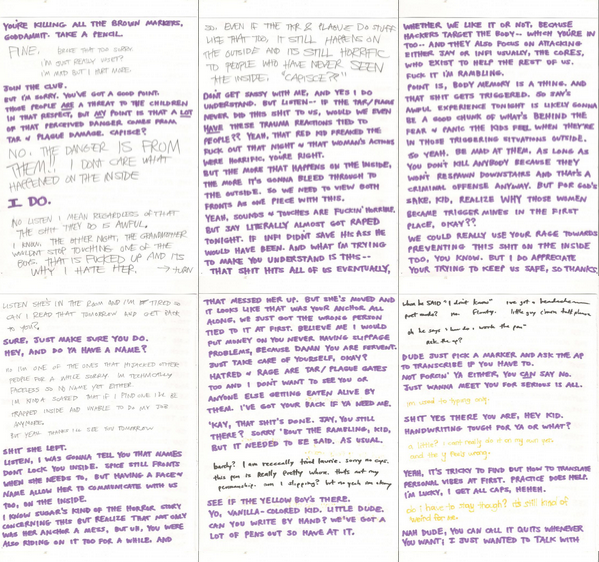 YOU'RE KILLING ALL THE BROWN MARKERS,
GODDAMNIT. TAKE A PENCIL.
FINE.
I'M JUST REALLY UPSET?
I'M MAD BUT I HURT MORE.
JOIN THE CLUB.
BUT I'M SORRY. YOU'VE GOT A GOOD POINT.
THOSE PEOPLE ARE A THREAT TO THE CHILDREN
IN THAT RESPECT, BUT MY POINT IS THAT A LOT
OF THAT PERCEIVED DANGER COMES FROM
TAR & PLAGUE DAMAGE. CAPISCE?
NO. THE DANGER IS FROM
THEM!! I DONT CARE WHAT
HAPPENED ON THE INSIDE
I DO.
NO LISTEN I MEAN REGARDLESS OF THAT
THE SHIT THEY DO IS AWFUL.
I KNOW, THE OTHER NIGHT, THE GRANDMOTHER
WOULDN'T STOP TOUCHING ONE OF THE
BOYS. THAT IS FUCKED UP AND ITS
WHY I HATE HER. → TURN
SO. EVEN IF THE TAR & PLAGUE DO STUFF
LIKE THAT TOO, IT STILL HAPPENS ON
THE OUTSIDE AND ITS STILL HORRIFIC
TO PEOPLE WHO HAVE NEVER SEEN
THE INSIDE. "CAPISCE??"
DON'T GET SASSY WITH ME, AND YES I DO
UNDERSTAND. BUT LISTEN-- IF THE TAR/PLAGUE
NEVER DID THIS SHIT TO US, WOULD WE EVEN
HAVE THESE TRAUMA REACTIONS TIED TO
PEOPLE?? YEAH, THAT RED KID FREAKED THE
FUCK OUT THAT NIGHT & THAT WOMAN'S ACTIONS
WERE HORRIFIC. YOU'RE RIGHT.
BUT THE MORE THAT HAPPENS ON THE INSIDE,
THE MORE IT'S GONNA BLEED THROUGH TO
THE OUTSIDE. SO WE NEED TO VIEW BOTH
FRONTS AS ONE PIECE WITH THIS.
YEAH, SOUNDS & TOUCHES ARE FUCKIN' HORRIBLE.
BUT JAY LITERALLY ALMOST GOT RAPED
TONIGHT. IF INFI DIDN'T SAVE HIS ASS HE
WOULD HAVE BEEN. AND WHAT I'M TRYING
TO MAKE YOU UNDERSTAND IS THIS--
THAT SHIT HITS ALL OF US EVENTUALLY,
WHETHER WE LIKE IT OR NOT. BECAUSE
HACKERS TARGET THE BODY-- WHICH YOU'RE IN
TOO-- AND THEY ALSO FOCUS ON ATTACKING
EITHER JAY OR INFI USUALLY, THE CORES,
WHO EXIST TO HELP THE REST OF US.
FUCK IT I'M RAMBLING.
POINT IS, BODY MEMORY IS A THING. AND
THAT SHIT GETS TRIGGERED. SO JAY'S
AWFUL EXPERIENCE TONIGHT IS LIKELY GONNA
BE A GOOD CHUNK OF WHAT'S BEHIND THE
FEAR & PANIC THE KIDS FEEL WHEN THEY'RE
IN THOSE TRIGGERING SITUATIONS OUTSIDE.
SO YEAH. BE MAD AT THEM. AS LONG AS
YOU DON'T KILL ANYBODY BECAUSE THEY
WON'T RESPAWN DOWNSTAIRS AND THAT'S A
CRIMINAL OFFENSE ANYWAY. BUT FOR GOD'S
SAKE, KID, REALIZE WHY THOSE WOMEN
BECAME TRIGGER MINES IN THE FIRST
PLACE, OKAY??
WE COULD REALLY USE YOUR RAGE TOWARDS
PREVENTING THIS SHIT ON THE INSIDE
TOO, YOU KNOW. BUT I DO APPRECIATE
YOUR TRYING TO KEEP US SAFE, SO THANKS.
LISTEN SHE'S IN THE ROOM AND I'M TIRED SO
CAN I READ THAT TOMORROW AND GET BACK
TO YOU?
SURE. JUST MAKE SURE YOU DO.
HEY, AND DO YA HAVE A NAME?
NO I'M ONE OF THE ONES THAT HIJACKED OTHER
PEOPLE FOR A WHILE SORRY. I'M TECHNICALLY
FACELESS SO NO NAME YET EITHER.
I'M KINDA SCARED THAT IF I FIND ONE I'LL BE
TRAPPED INSIDE AND UNABLE TO DO MY JOB
ANYMORE.
BUT YEAH. I'LL SEE YOU TOMORROW
SHIT SHE LEFT.
LISTEN, I WAS GONNA TELL YOU THAT NAMES
DON'T LOCK YOU INSIDE. SPICE STILL FRONTS
WHEN SHE NEEDS TO, BUT HAVING A FACE &
NAME ALLOW HER TO COMMUNICATE WITH US
TOO, ON THE INSIDE.
I KNOW SUGAR'S KIND OF THE HORROR STORY
CONCERNING THIS BUT REALIZE THAT NOT ONLY
WAS HER ANCHOR A MESS, BUT UH, YOU WERE
ALSO RIDING ON IT TOO FOR A WHILE. AND
THAT MESSED HER UP. BUT SHE'S MOVED AND
IT LOOKS LIKE THAT WAS YOUR ANCHOR ALL
ALONG, WE JUST GOT THE WRONG PERSON
TIED TO IT AT FIRST. BELIEVE ME I WOULD
PUT MONEY ON YOU NEVER HAVING SLIPPAGE
PROBLEMS, BECAUSE DAMN YOU ARE FERVENT.
JUST TAKE CARE OF YOURSELF, OKAY?
HATRED & RAGE ARE TAR/PLAGUE GATES
TOO AND I DON'T WANT TO SEE YOU OR
ANYONE ELSE GETTING EATEN ALIVE BY
THEM. I'VE GOT YOUR BACK IF YA NEED ME.
'KAY, THAT SHIT'S DONE. JAY, YOU STILL
THERE? SORRY 'BOUT THE RAMBLING, KID,
BUT IT NEEDED TO BE SAID. AS USUAL.
barely? I am reeeeally tired laurie. sorry no caps.
this pen is really pretty whoa. thats not my
penmanship. am I slipping? but no yeah am okay
SEE IF THE YELLOW BOY'S THERE.
YO, VANILLA-COLORED KID. LITTLE DUDE.
CAN YOU WRITE BY HAND? WE'VE GOT A
LOT OF PENS OUT SO HAVE AT IT.
DUDE JUST PICK A MARKER AND ASK THE AP
TO TRANSCRIBE IF YOU HAVE TO.
NOT FORCIN' YA EITHER, YOU CAN SAY NO.
JUST WANNA MEET YOU FOR SERIOUS IS ALL.
SHIT YES THERE YOU ARE, HEY KID.
HANDWRITING TOUGH FOR YA OR WHAT?
YEAH, IT'S TRICKY TO FIND OUT HOW TO TRANSLATE
PERSONAL VIBES AT FIRST. PRACTICE DOES HELP.
I'M LUCKY, I GET ALL CAPS, HEHEH.
NAH DUDE, YOU CAN CALL IT QUITS WHENEVER
YOU WANT; I JUST WANTED TO TALK WITH